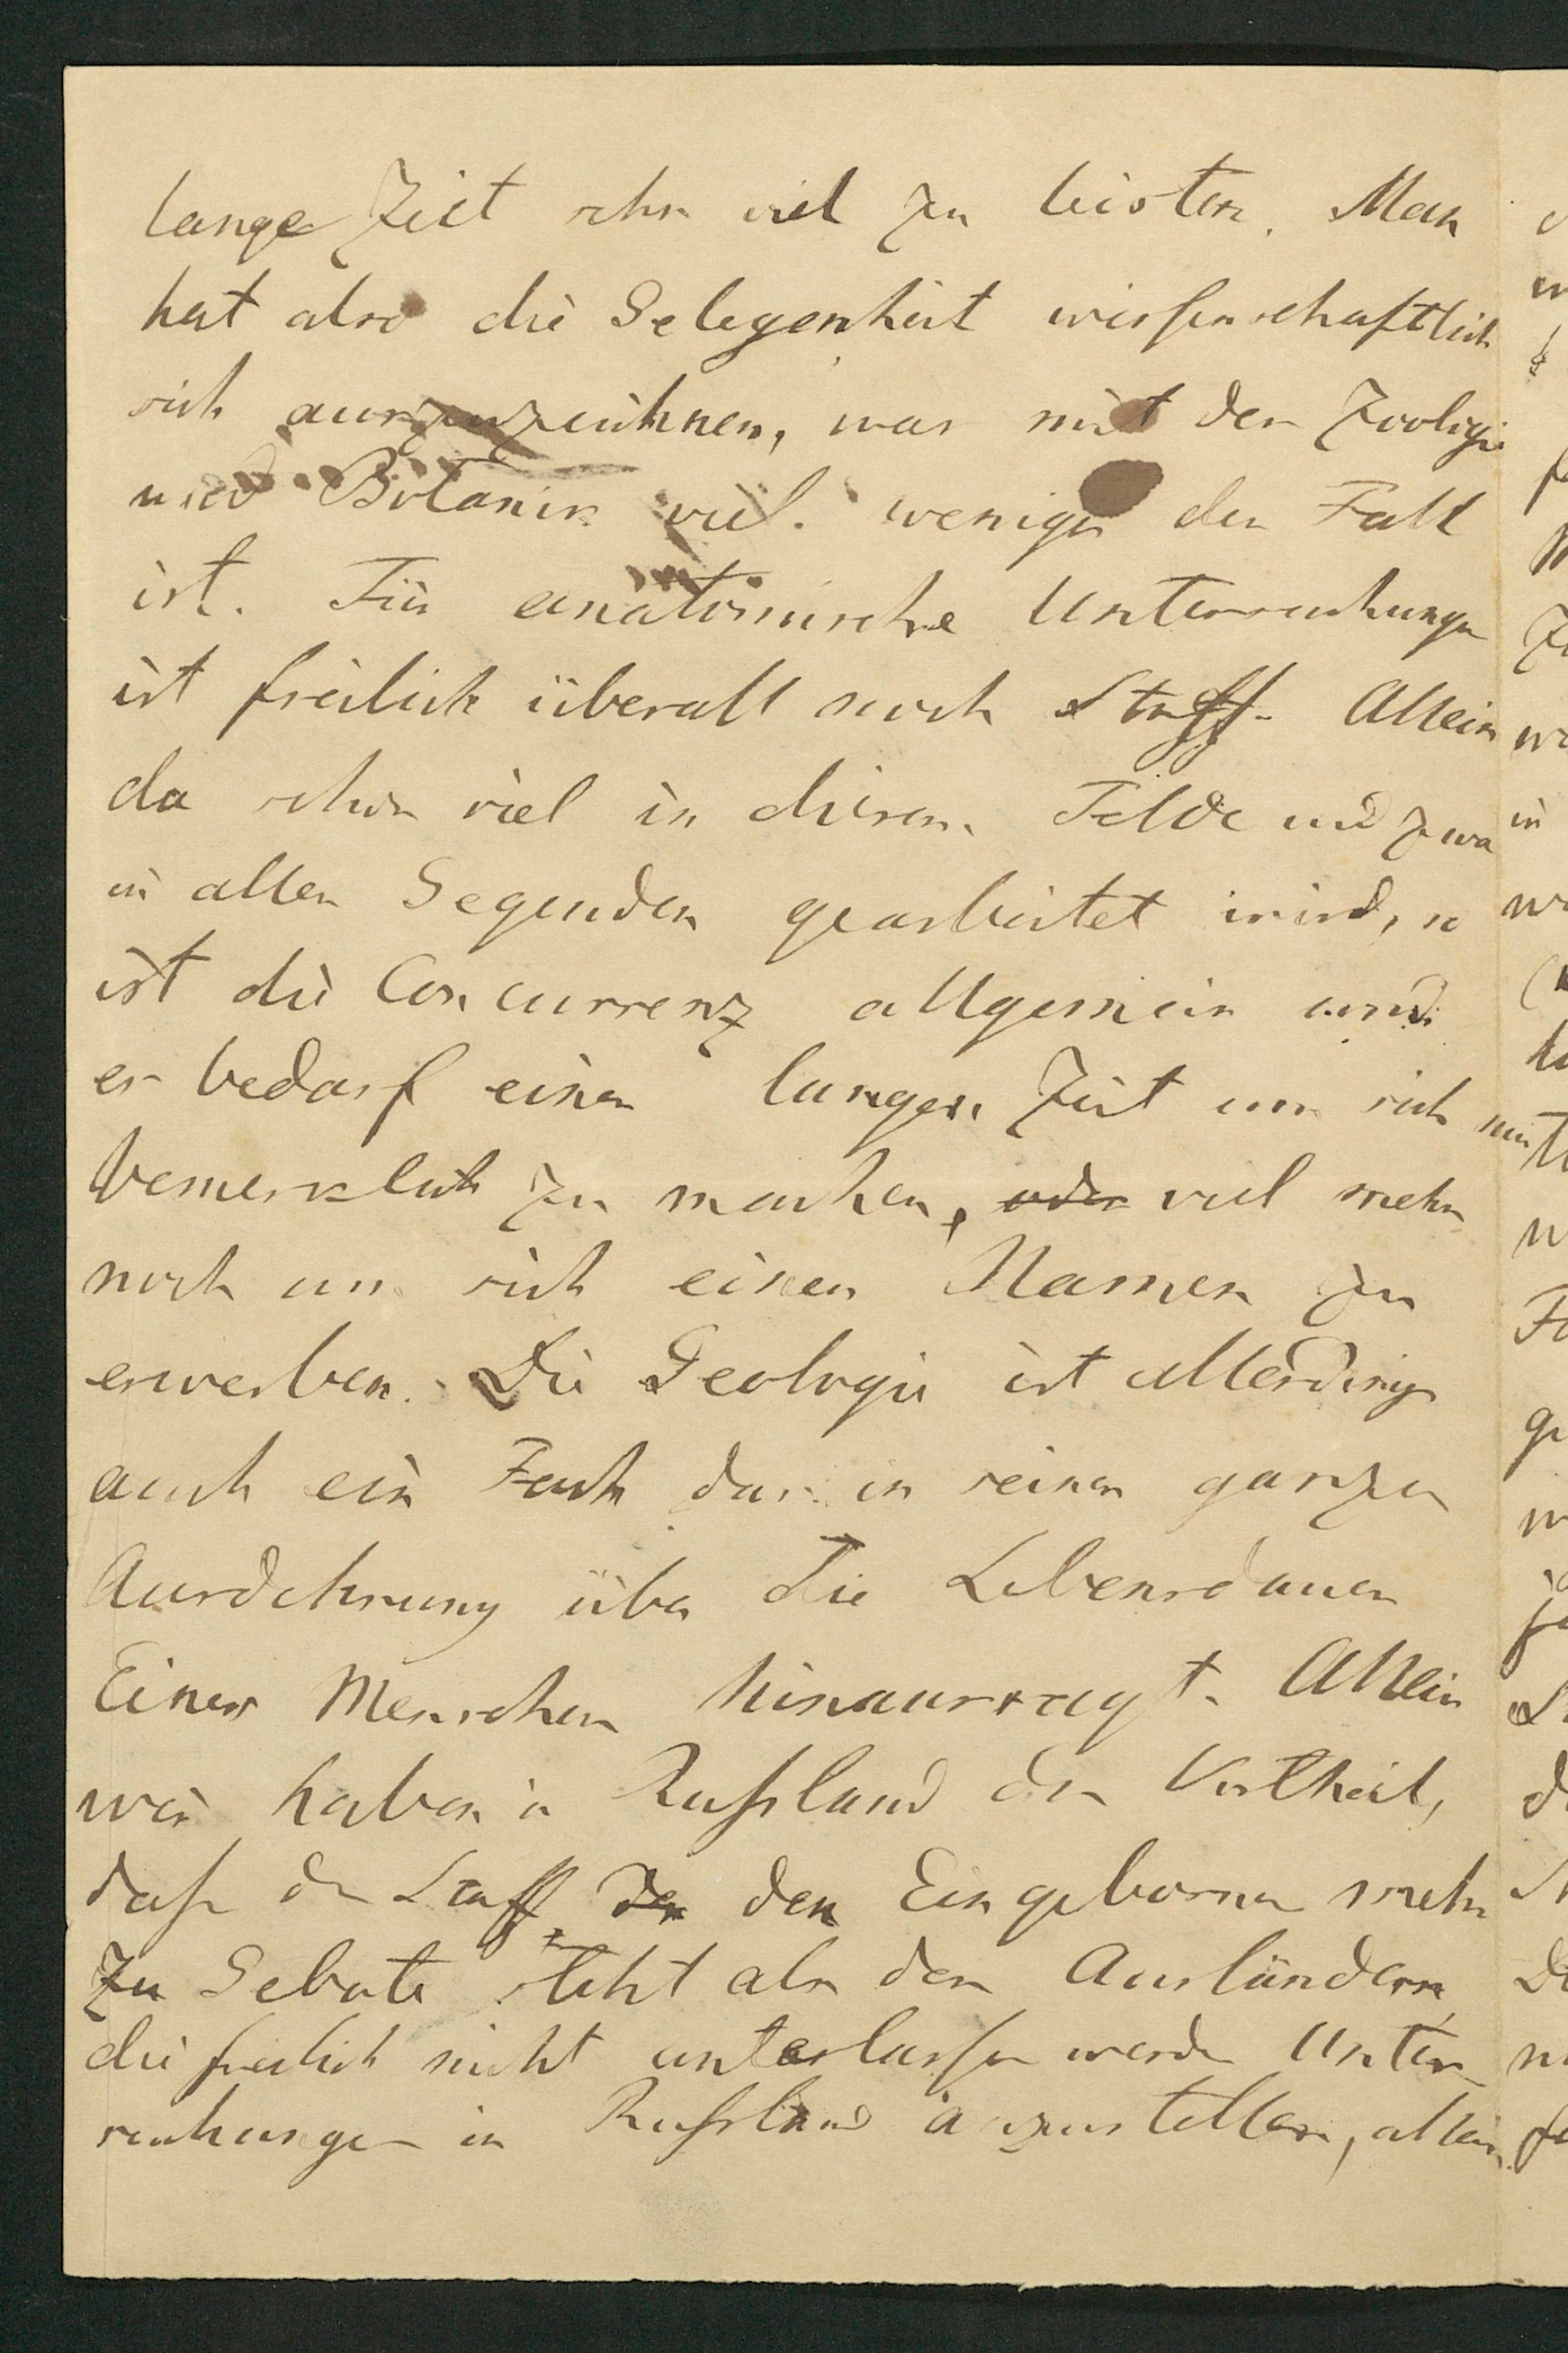 lange Zeit sehr viel zu leisten. Man
hat also die Gelegenheit wissenschaftlich
sich auszuzeichnen, was mit der Zoologie
und Botanik viel weniger der Fall
ist. Für anatomische Untersuchungen
ist freilich überall noch Stoff. Allein
da schon viel in diesem Felde und zwar
in allen Gegenden gearbeitet wird, so
ist die Concurrenz allgemein und
es bedarf einer langen Zeit um sich nur
bemerklich zu machen, oder viel mehr
noch um sich einen Namen zu
erwerben. Die Geologie ist allerdings
auch ein Fach das in seiner ganzen
Ausdehnung über die Lebensdauer
Eines Menschen hinausragt. Allein
wir haben in Russland den Vortheil,
dass der Stoff der den Eingebornen mehr
zu Gebote steht als den Ausländern
die freilich nicht unterlassen werden Unter-
suchungen in Russland anzustellen, allein